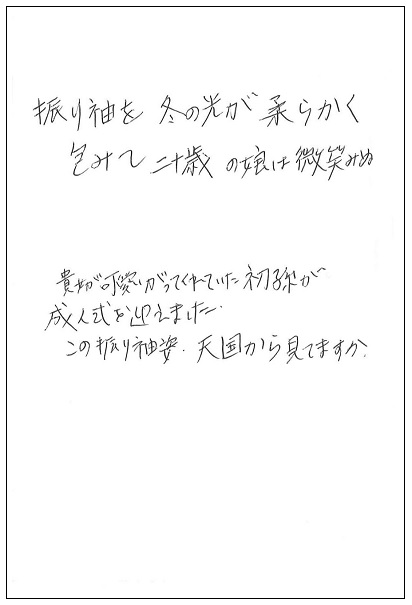 振り袖を 冬の光が 柔らかく
包みて 二十歳 の娘は 微笑みぬ
貴女が可愛いがってくれていた初孫が
成人式を迎えました。
この振り袖姿、天国から見てますか?